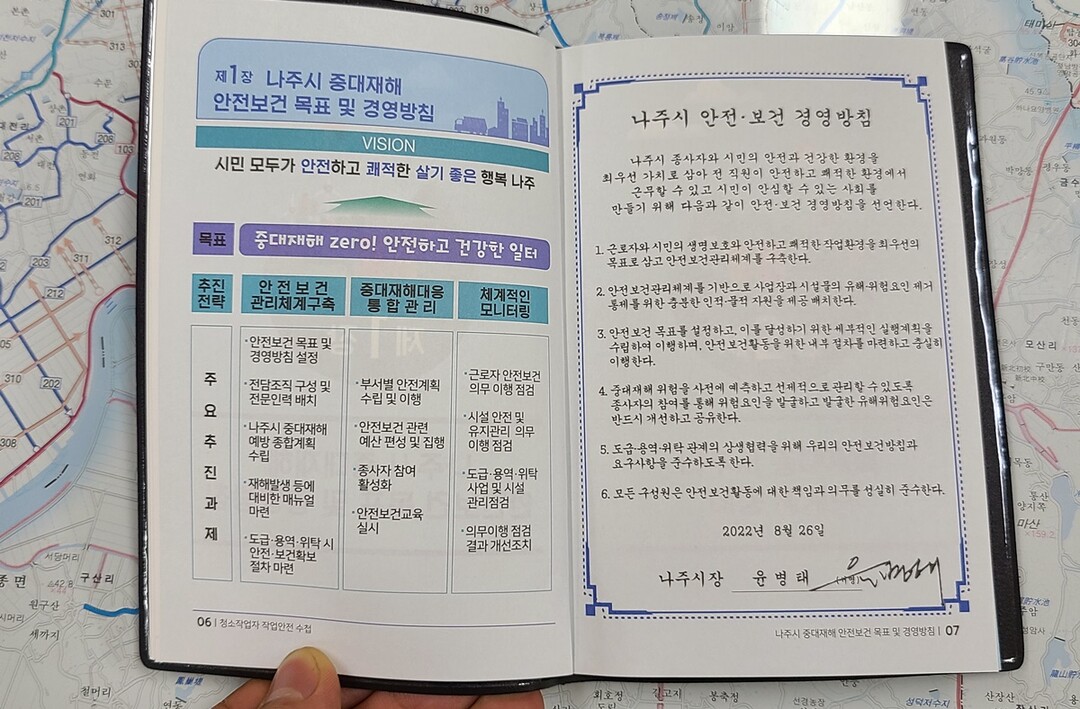 제1장 나주시 중대재해
안전보건 목표 및 경영방침
VISION
시민 모두가 안전하고 쾌적한 살기 좋은 행복 나주
목표
중대재해 zero! 안전하고 건강한 일터
추진
전략
안전보건
관리체계구축
중대재해대응
통합관리
체계적인
모니터링
주
요
추
진
과
제
·안전보건 목표 및
경영방침 설정
·전담조직 구성 및
전문인력 배치
·나주시 중대재해
예방 종합계획
수립
·재해발생 등에
대비한 매뉴얼
마련
·도급·용역·위탁 시
안전·보건확보
절차 마련
·부서별 안전계획
수립 및 이행
·안전보건 관련
예산 편성 및 집행
·종사자 참여
활성화
·안전보건교육
실시
·근로자 안전보건
의무 이행 점검
·시설 안전 및
유지관리 의무
이행 점검
·도급·용역·위탁
사업 및 시설
관리점검
·의무이행 점검
결과 개선조치
06 | 청소작업자 작업안전 수첩
나주시 안전·보건 경영방침
나주시 종사자와 시민의 안전과 건강한 환경을
최우선 가치로 삼아 전 직원이 안전하고 쾌적한 환경에서
근무할 수 있고 시민이 안심할 수 있는 사회를
만들기 위해 다음과 같이 안전·보건 경영방침을 선언한다.
1. 근로자와 시민의 생명보호와 안전하고 쾌적한 작업환경을 최우선의
목표로 삼고 안전보건관리체계를 구축한다.
2. 안전보건관리체계를 기반으로 사업장과 시설물의 유해·위험요인 제거
통제를 위한 충분한 인적·물적 자원을 제공 배치한다.
3. 안전보건 목표를 설정하고, 이를 달성하기 위한 세부적인 실행계획을
수립하여 이행하며, 안전보건활동을 위한 내부 절차를 마련하고 충실히
이행한다.
4. 중대재해 위험을 사전에 예측하고 선제적으로 관리할 수 있도록
종사자의 참여를 통해 위험요인을 발굴하고 발굴한 유해위험요인은
반드시 개선하고 공유한다.
5. 도급·용역·위탁 관계의 상생협력을 위해 우리의 안전보건방침과
요구사항을 준수하도록 한다.
6. 모든 구성원은 안전보건활동에 대한 책임과 의무를 성실히 준수한다.
2022년 8월 26일
나주시장 윤병태 (서명)
나주시 중대재해 안전보건 목표 및 경영방침 | 07
313
208
208
103
201
201
312
311
212
310
308
구산리
원구산
세까지
절머리
회호정
길고지
봉축정
성덕저수지
산장산
모산리
마산